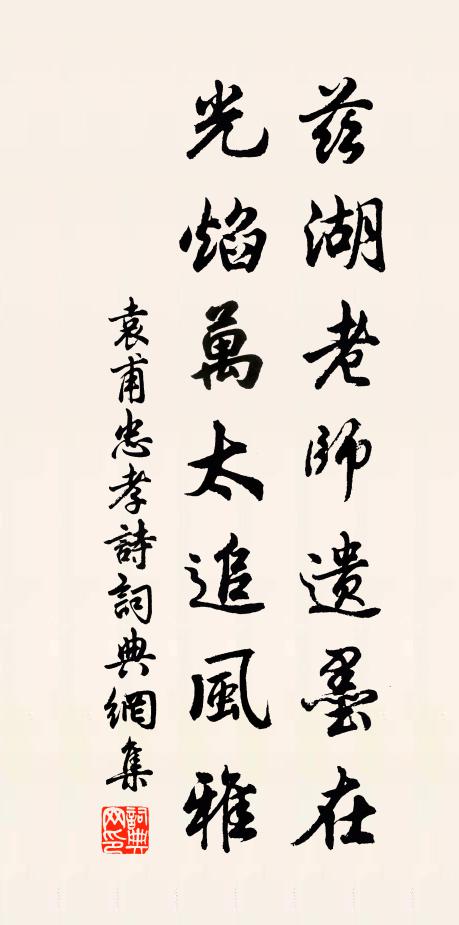 茲湖老師遺墨在
光焰萬太追風雅
袁甫忠孝詩詞典網集
詞典網印